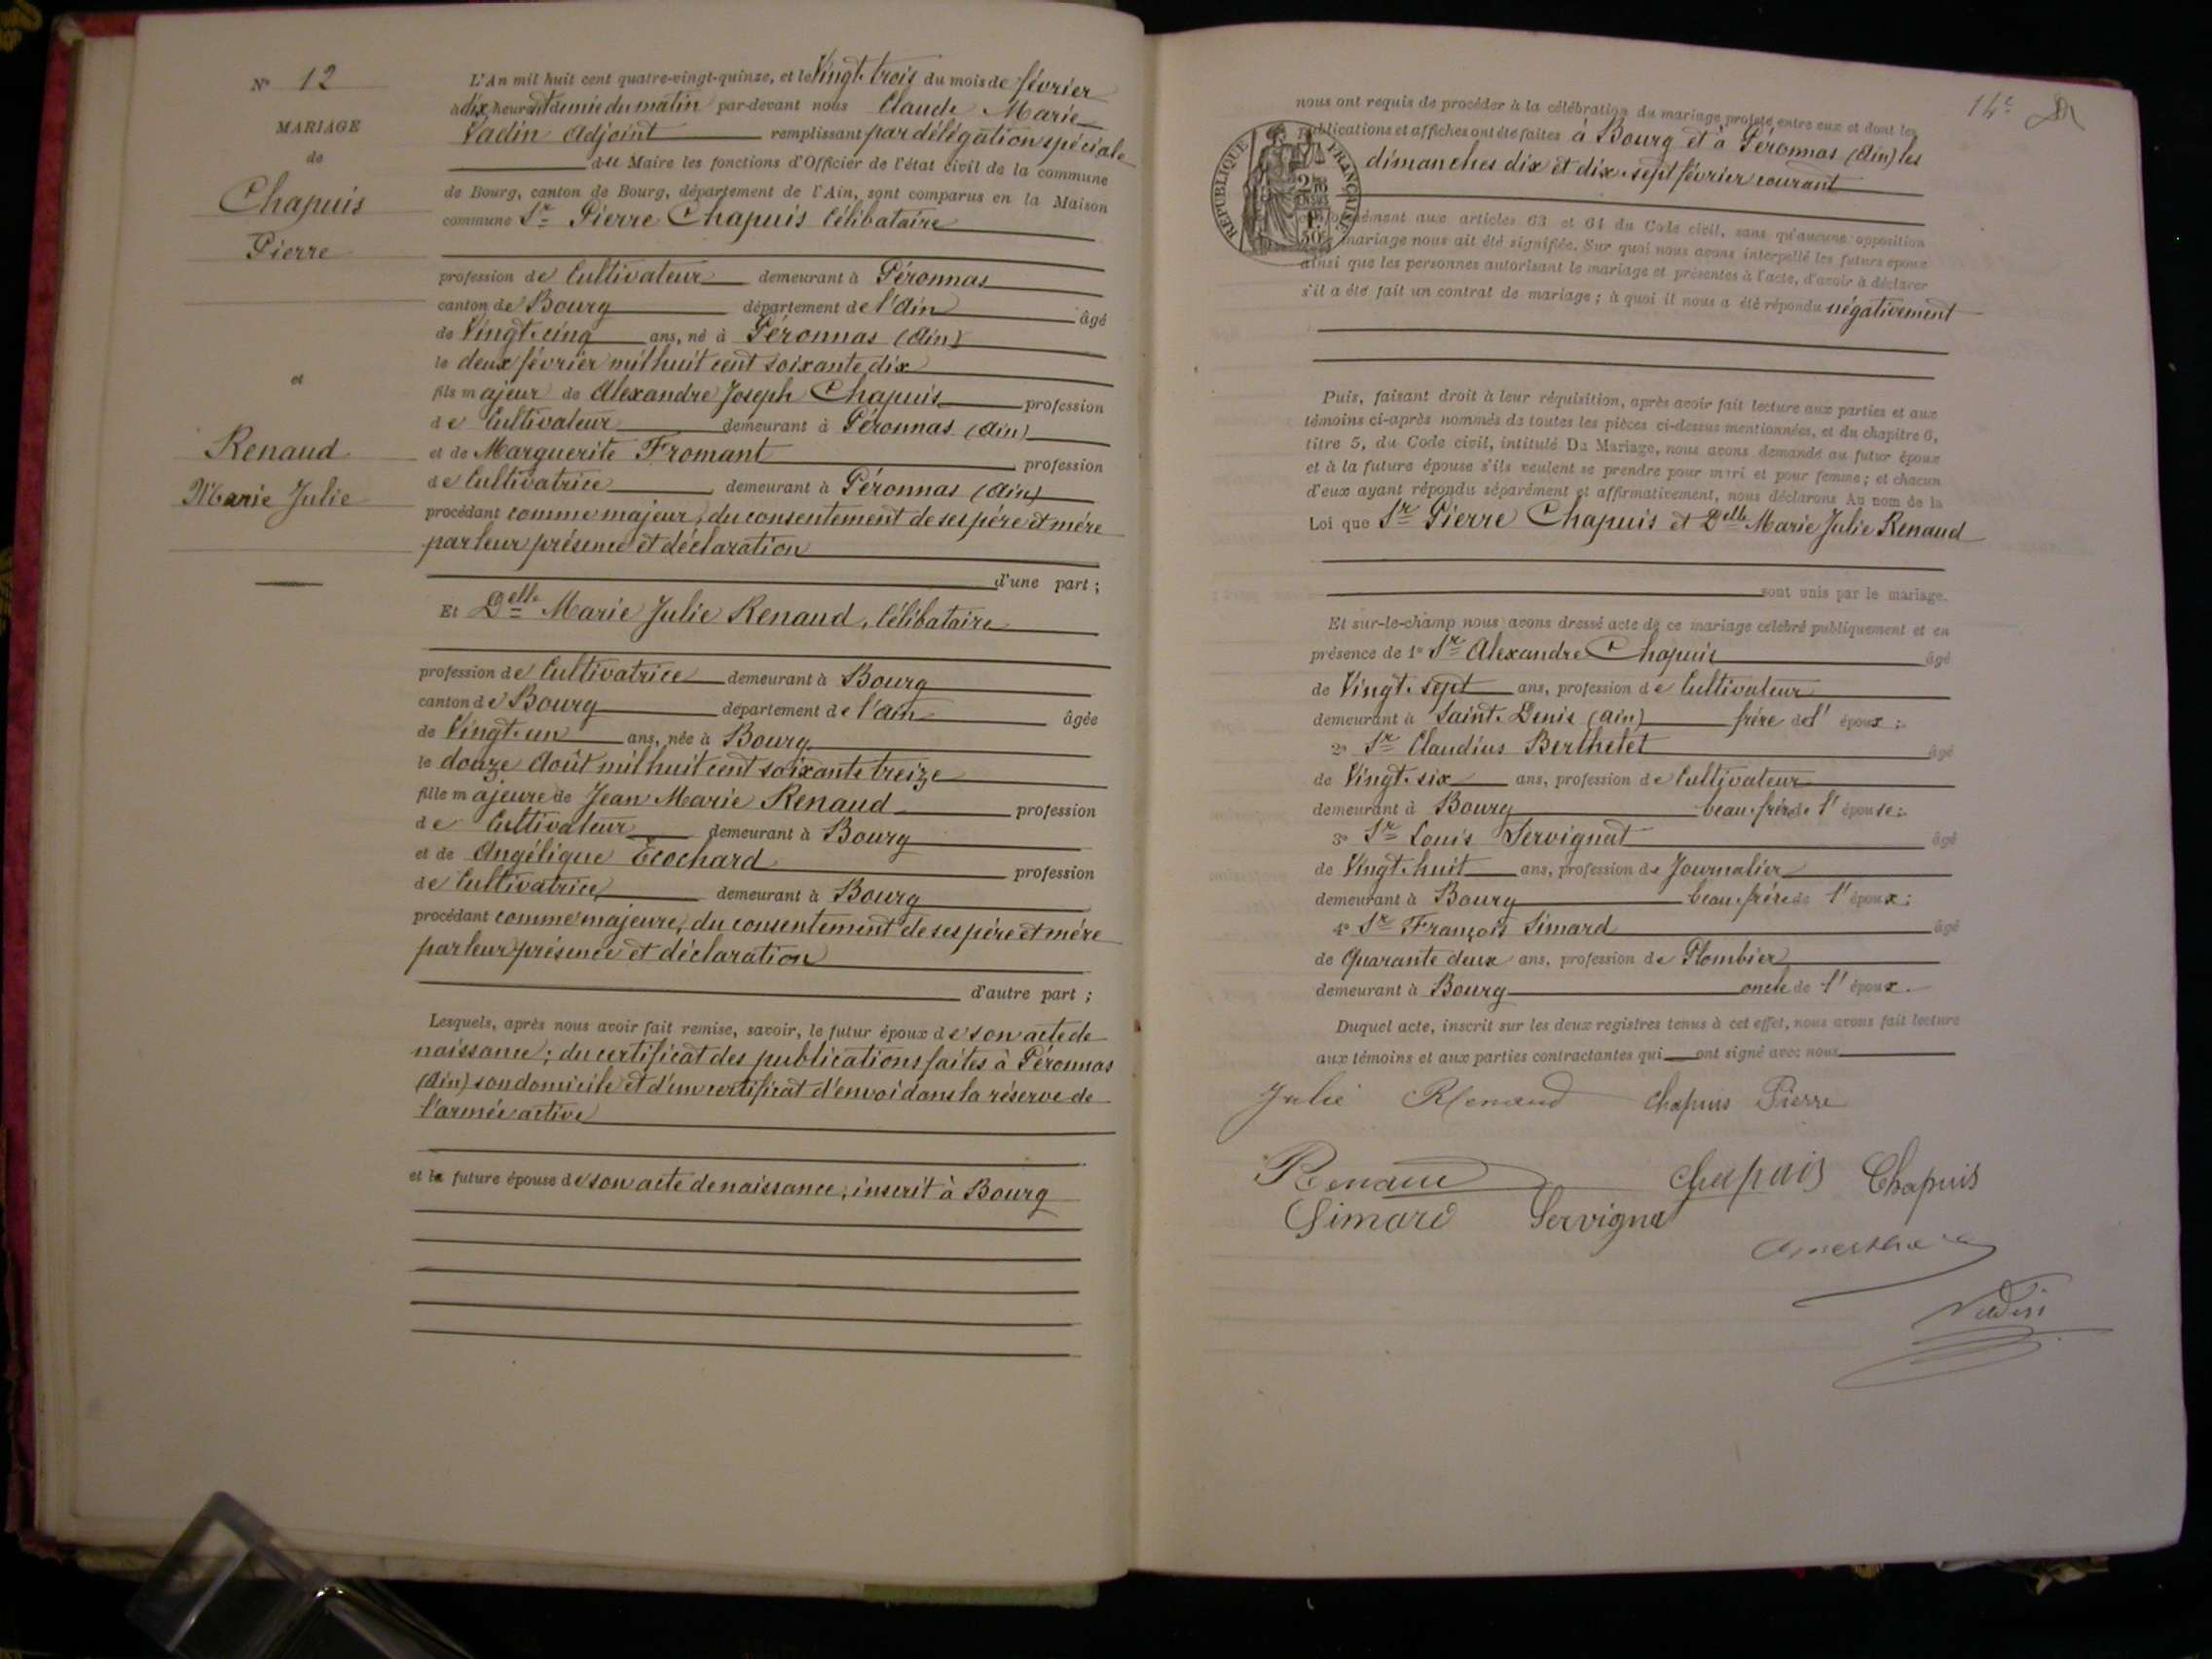 N° 12
MARIAGE
de
Chapuis
Pierre
et
Renaud
Marie Julie
L'An mil huit cent quatre-vingt-quinze, et le Vingt-trois du mois de février
à dix heures et demie du matin par-devant nous Claude Marie
Vadin Adjoint remplissant par délégation spéciale
du Maire les fonctions d'Officier de l'état civil de la commune
de Bourg, canton de Bourg, département de l'Ain, sont comparus en la Maison
commune Sr Pierre Chapuis Célibataire
profession de Cultivateur demeurant à Péronnas
canton de Bourg département de l'Ain âgé
de Vingt-cinq ans, né à Péronnas (Ain)
le deux février mil huit cent soixante dix
fils majeur de Alexandre Joseph Chapuis profession
de Cultivateur demeurant à Péronnas (Ain)
et de Marguerite Fromant profession
de Cultivatrice demeurant à Péronnas (Ain)
procédant comme majeur, du consentement de ses père et mère
par leur présence et déclaration
d'une part ;
Et Delle Marie Julie Renaud, Célibataire
profession de Cultivatrice demeurant à Bourg
canton de Bourg département de l'Ain âgée
de Vingt-un ans, née à Bourg
le douze Août mil huit cent soixante treize
fille majeure de Jean Marie Renaud profession
de Cultivateur demeurant à Bourg
et de Angélique Ecochard profession
de Cultivatrice demeurant à Bourg
procédant comme majeure, du consentement de ses père et mère
par leur présence et déclaration
d'autre part ;
Lesquels, après nous avoir fait remise, savoir, le futur époux de son acte de
naissance ; du certificat des publications faites à Péronnas
(Ain) son domicile et d'un certificat d'envoi dans la réserve de
l'armée active
et la future épouse de son acte de naissance, inscrit à Bourg
14e
nous ont requis de procéder à la célébration du mariage projeté entre eux et dont les
publications et affiches ont été faites à Bourg et à Péronnas (Ain) les
dimanches dix et dix-sept février courant
RÉPUBLIQUE FRANÇAISE
conformément aux articles 63 et 64 du Code civil, sans qu'aucune opposition
mariage nous ait été signifiée. Sur quoi nous avons interpellé les futurs époux
ainsi que les personnes autorisant le mariage et présentes à l'acte, d'avoir à déclarer
s'il a été fait un contrat de mariage ; à quoi il nous a été répondu négativement
Puis, faisant droit à leur réquisition, après avoir fait lecture aux parties et aux
témoins ci-après nommés de toutes les pièces ci-dessus mentionnées, et du chapitre 6,
titre 5, du Code civil, intitulé Du Mariage, nous avons demandé au futur époux
et à la future épouse s'ils veulent se prendre pour mari et pour femme ; et chacun
d'eux ayant répondu séparément et affirmativement, nous déclarons Au nom de la
Loi que Sr Pierre Chapuis et Delle Marie Julie Renaud
sont unis par le mariage.
Et sur-le-champ nous avons dressé acte de ce mariage célébré publiquement et en
présence de 1° Sr Alexandre Chapuis âgé
de Vingt-sept ans, profession de Cultivateur
demeurant à Saint-Denis (Ain) frère de l'époux ;
2° Sr Claudius Berthelet âgé
de Vingt-six ans, profession de Cultivateur
demeurant à Bourg beau-frère de l'épouse ;
3° Sr Louis Servignat âgé
de Vingt-huit ans, profession de Journalier
demeurant à Bourg beau-frère de l'époux ;
4° Sr François Simard âgé
de Quarante deux ans, profession de Plombier
demeurant à Bourg oncle de l'époux.
Duquel acte, inscrit sur les deux registres tenus à cet effet, nous avons fait lecture
aux témoins et aux parties contractantes qui ont signé avec nous
Julie Renaud Chapuis Pierre
Renaud Chapuis Chapuis
Simard Servignat
Vadin